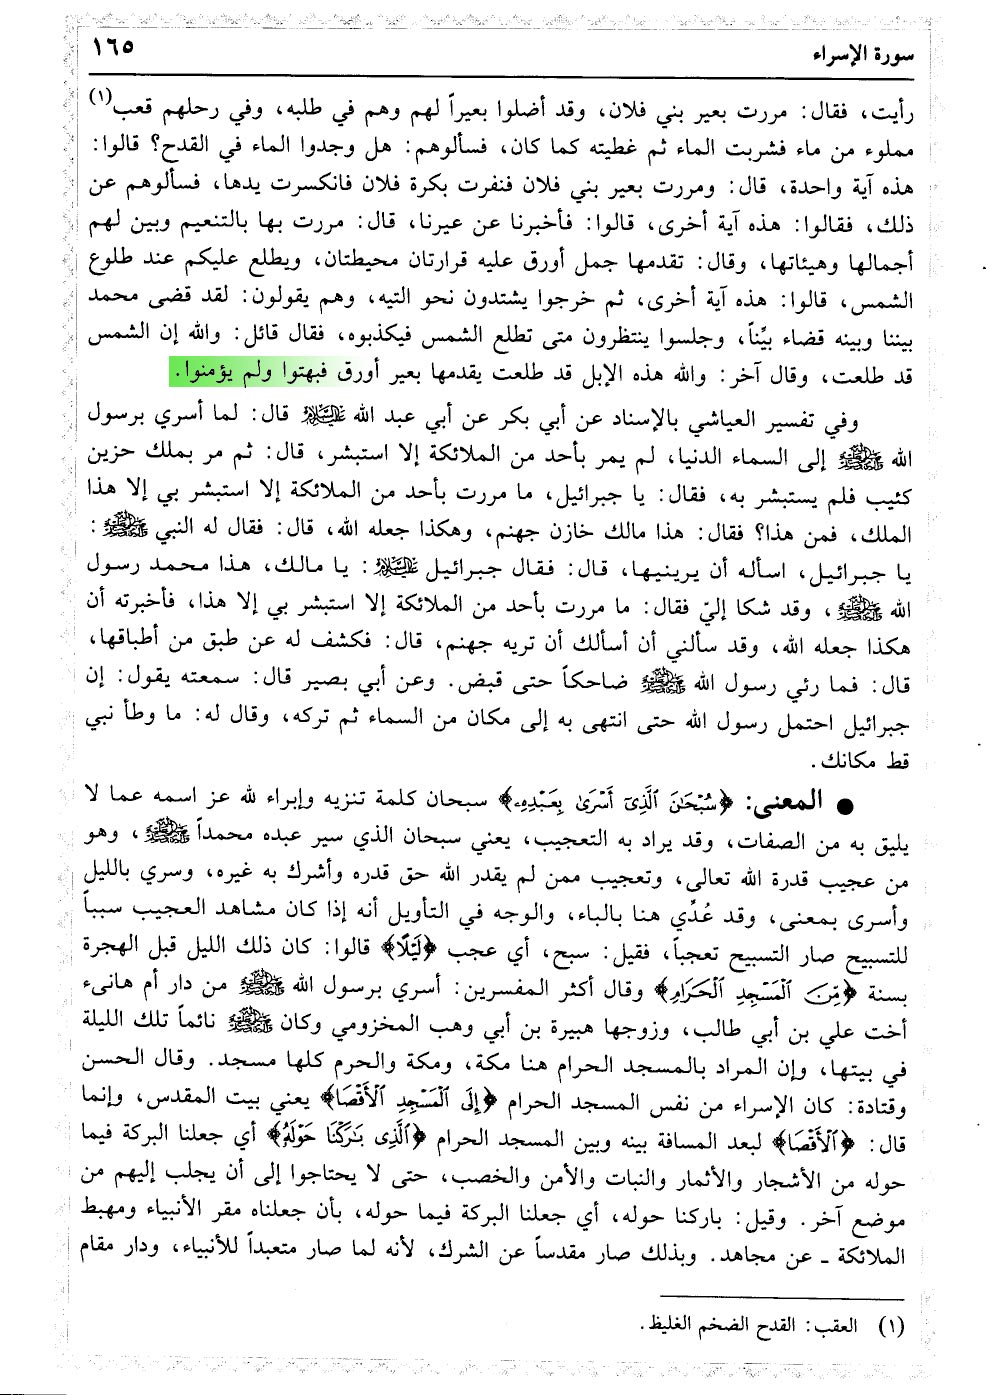 سورة الإسراء ١٦٥
رأيت، فقال: مررت بعير بني فلان، وقد أضلوا بعيراً لهم وهم في طلبه، وفي رحلهم قعب(١)
مملوء من ماء فشربت الماء ثم غطيته كما كان، فسألوهم: هل وجدوا الماء في القدح؟ قالوا:
هذه آية واحدة، قال: ومررت بعير بني فلان فنفرت بكرة فلان فانكسرت يدها، فسألوهم عن
ذلك، فقالوا: هذه آية أخرى، قالوا: فأخبرنا عن عيرنا، قال: مررت بها بالتنعيم وبين لهم
أجمالها وهيئاتها، وقال: تقدمها جمل أورق عليه قرارتان محيطتان، ويطلع عليكم عند طلوع
الشمس، قالوا: هذه آية أخرى، ثم خرجوا يشتدون نحو التيه، وهم يقولون: لقد قضى محمد
بيننا وبينه قضاء بيِّناً، وجلسوا ينتظرون متى تطلع الشمس فيكذبوه، فقال قائل: والله إن الشمس
قد طلعت، وقال آخر: والله هذه الإبل قد طلعت يقدمها بعير أورق فبهتوا ولم يؤمنوا.
وفي تفسير العياشي بالإسناد عن أبي بكر عن أبي عبد الله عليه السلام قال: لما أسري برسول
الله ﷺ إلى السماء الدنيا، لم يمر بأحد من الملائكة إلا استبشر، قال: ثم مر بملك حزين
كئيب فلم يستبشر به، فقال: يا جبرائيل، ما مررت بأحد من الملائكة إلا استبشر بي إلا هذا
الملك، فمن هذا؟ فقال: هذا مالك خازن جهنم، وهكذا جعله الله، قال: فقال له النبي ﷺ:
يا جبرائيل، اسأله أن يرينيها، قال: فقال جبرائيل عليه السلام: يا مالك، هذا محمد رسول
الله ﷺ، وقد شكا إليّ فقال: ما مررت بأحد من الملائكة إلا استبشر بي إلا هذا، فأخبرته أن
هكذا جعله الله، وقد سألني أن أسألك أن تريه جهنم، قال: فكشف له عن طبق من أطباقها،
قال: فما رئي رسول الله ﷺ ضاحكاً حتى قبض. وعن أبي بصير قال: سمعته يقول: إن
جبرائيل احتمل رسول الله حتى انتهى به إلى مكان من السماء ثم تركه، وقال له: ما وطأ نبي
قط مكانك.
● المعنى: ﴿سُبْحَٰنَ ٱلَّذِىٓ أَسْرَىٰ بِعَبْدِهِۦ﴾ سبحان كلمة تنزيه وإبراء لله عز اسمه عما لا
يليق به من الصفات، وقد يراد به التعجيب، يعني سبحان الذي سير عبده محمداً ﷺ، وهو
من عجيب قدرة الله تعالى، وتعجيب ممن لم يقدر الله حق قدره وأشرك به غيره، وسري بالليل
وأسرى بمعنى، وقد عُدِّي هنا بالباء، والوجه في التأويل أنه إذا كان مشاهد العجيب سبباً
للتسبيح صار التسبيح تعجباً، فقيل: سبح، أي عجب ﴿لَيْلًا﴾ قالوا: كان ذلك الليل قبل الهجرة
بسنة ﴿مِّنَ ٱلْمَسْجِدِ ٱلْحَرَامِ﴾ وقال أكثر المفسرين: أسري برسول الله ﷺ من دار أم هانىء
أخت علي بن أبي طالب، وزوجها هبيرة بن أبي وهب المخزومي وكان ﷺ نائماً تلك الليلة
في بيتها، وإن المراد بالمسجد الحرام هنا مكة، ومكة والحرم كلها مسجد. وقال الحسن
وقتادة: كان الإسراء من نفس المسجد الحرام ﴿إِلَى ٱلْمَسْجِدِ ٱلْأَقْصَا﴾ يعني بيت المقدس، وإنما
قال: ﴿ٱلْأَقْصَا﴾ لبعد المسافة بينه وبين المسجد الحرام ﴿ٱلَّذِى بَٰرَكْنَا حَوْلَهُۥ﴾ أي جعلنا البركة فيما
حوله من الأشجار والأثمار والنبات والأمن والخصب، حتى لا يحتاجوا إلى أن يجلب إليهم من
موضع آخر. وقيل: باركنا حوله، أي جعلنا البركة فيما حوله، بأن جعلناه مقر الأنبياء ومهبط
الملائكة ـ عن مجاهد. وبذلك صار مقدساً عن الشرك، لأنه لما صار متعبداً للأنبياء، ودار مقام
(١) العقب: القدح الضخم الغليظ.